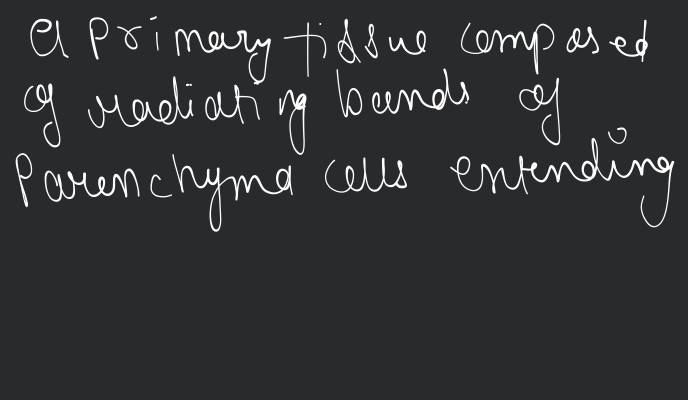 a primary tissue composed
of radiating bands of
parenchyma cells extending